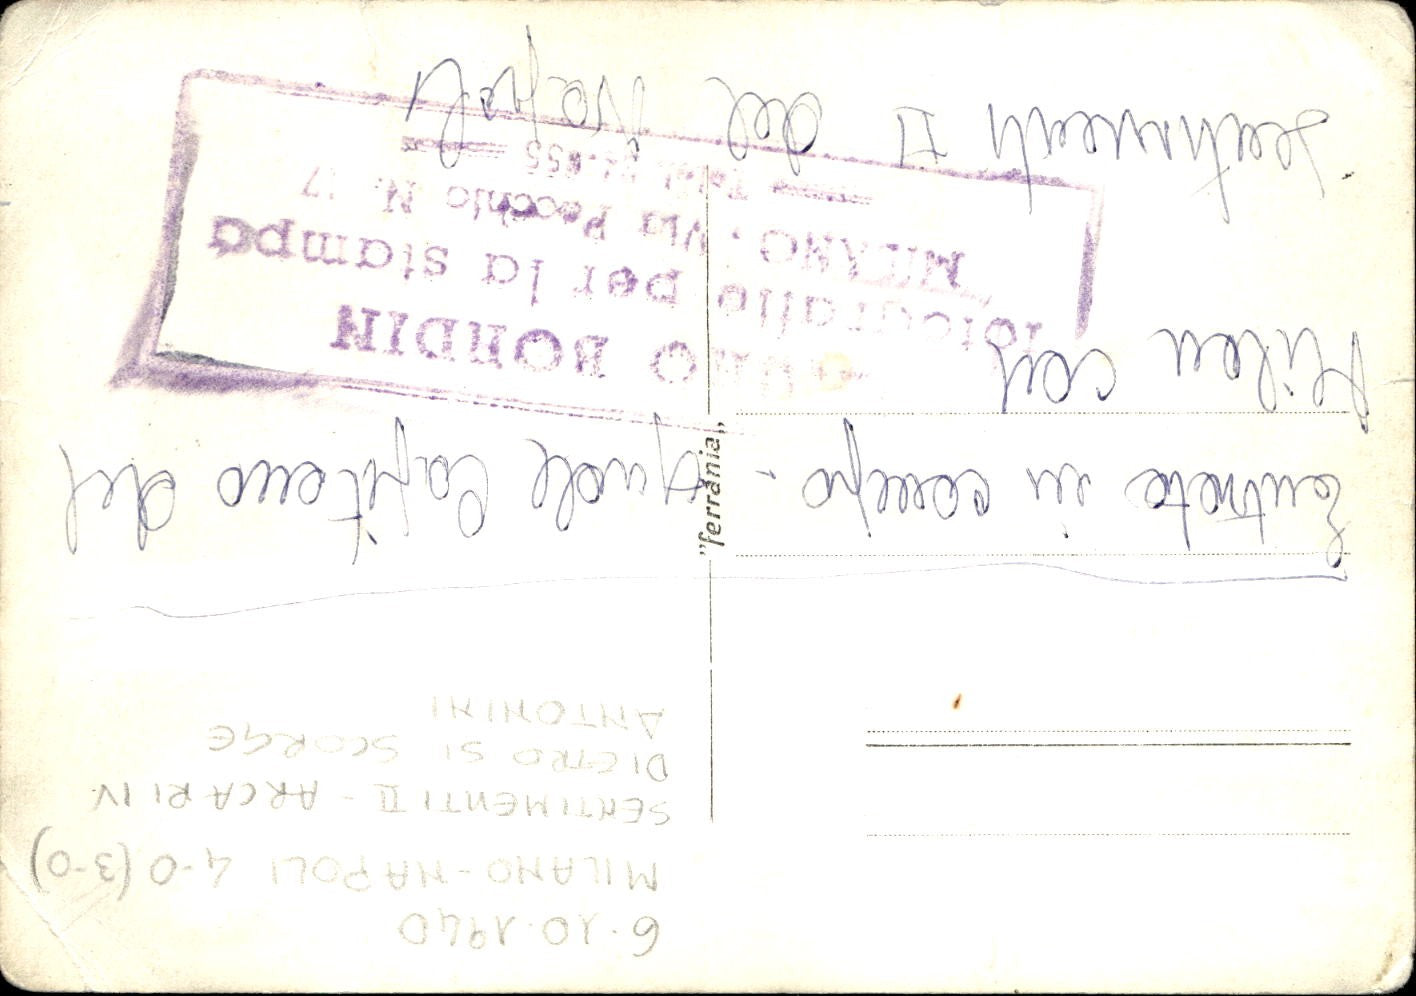 6.10.1940
MILANO-NAPOLI 4-0 (3-0)
SENTIMENTI II - ARCARI IV
DIETRO SI SCORGE
ANTONINI
Entrata in campo - quale Capitano del
Milan con
Sentimenti II del Napoli
BORDIN
fotografie per la stampa
MILANO - Via Pecchio N. 17
"ferrania"